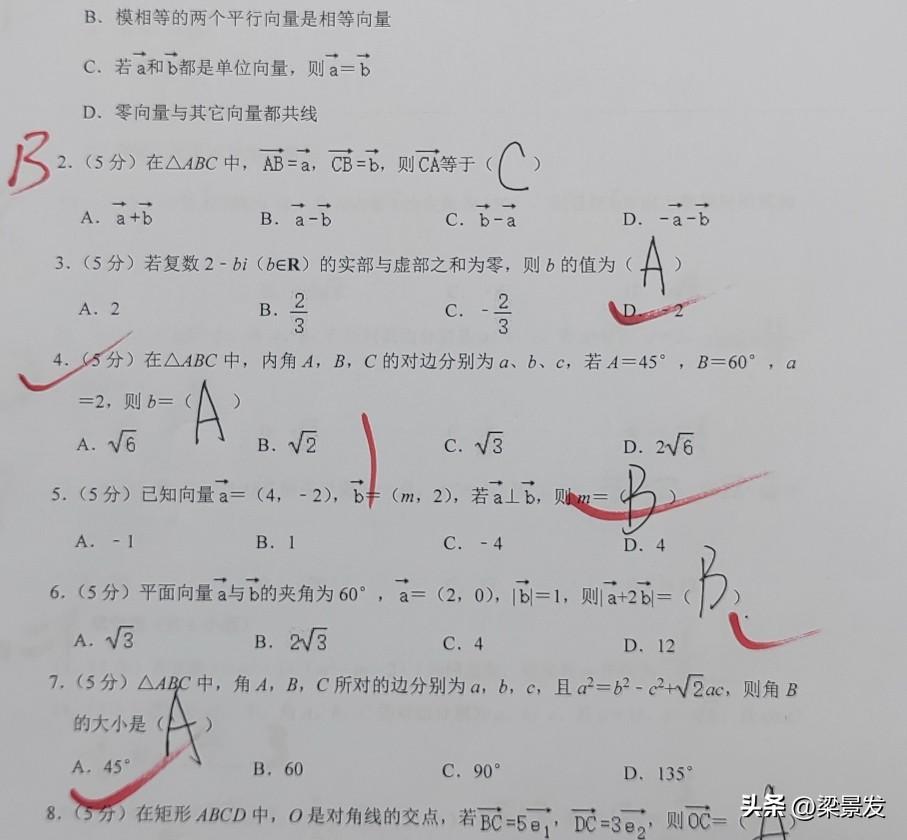 B．模相等的两个平行向量是相等向量
C．若a和b都是单位向量，则a=b
D．零向量与其它向量都共线
B 2．（5分）在△ABC中，AB=a，CB=b，则CA等于（ C ）
A．a+b B．a-b C．b-a D．-a-b
3．（5分）若复数2﹣bi（b∈R）的实部与虚部之和为零，则b的值为（ A ）
A．2 B．2/3 C．﹣2/3 D．﹣2
4．（5分）在△ABC中，内角A，B，C的对边分别为a、b、c，若A＝45°，B＝60°，a
＝2，则b＝（ A ）
A．√6 B．√2 C．√3 D．2√6
5．（5分）已知向量a＝（4，﹣2），b＝（m，2），若a⊥b，则m＝（ B ）
A．﹣1 B．1 C．﹣4 D．4
6．（5分）平面向量a与b的夹角为60°，a＝（2，0），|b|＝1，则|a+2b|＝（ B ）
A．√3 B．2√3 C．4 D．12
7．（5分）△ABC中，角A，B，C所对的边分别为a，b，c，且a²＝b²﹣c²+√2ac，则角B
的大小是（ A ）
A．45° B．60 C．90° D．135°
8．（5分）在矩形ABCD中，O是对角线的交点，若BC=5e₁，DC=3e₂，则OC＝（ A ）
头条 @梁景发